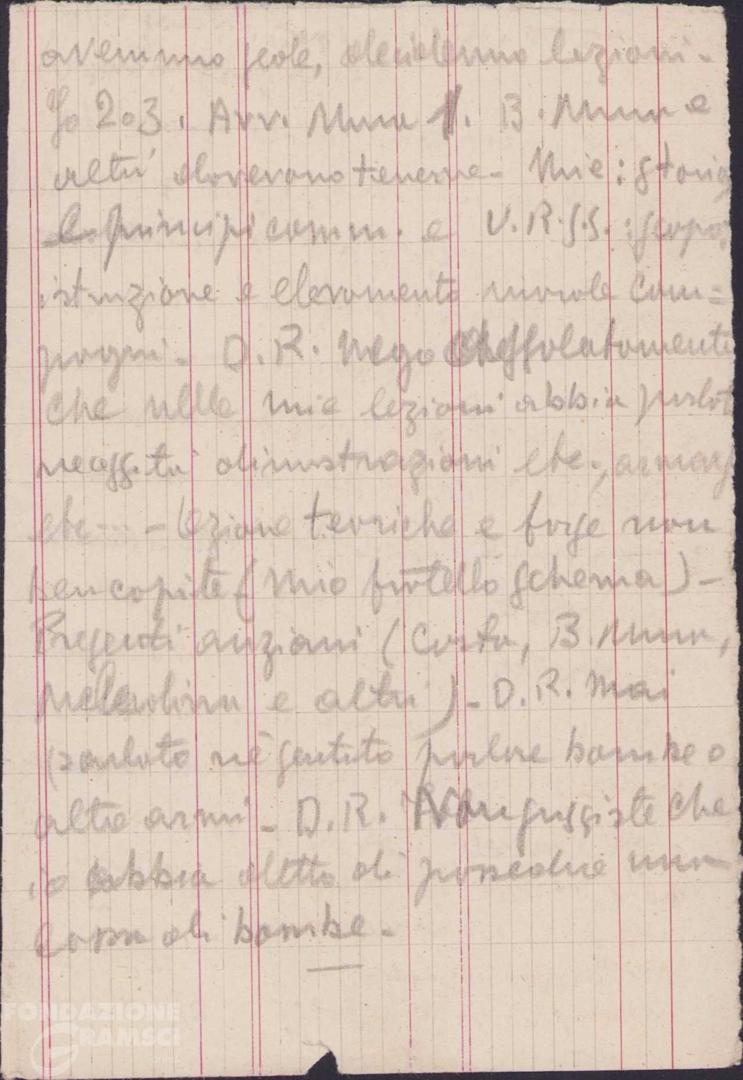 avemmo sede, decidemmo lezioni -
Io 2 o 3. Avv. Mura B. Mura e
altri dovevano tenerne - Mie: storia
principi comm. e U.R.S.S. : scopo,
istruzione e elevamento morale com=
pagni - D.R. Nego
che nelle mie lezioni abbia parlato
necessità dimostrazioni etc., armarsi
etc... - Lezione teoriche e forse non
ben capite (mio fratello schema) -
Presenti anziani (Costa, B. Mura,
e altri) - D.R. Mai
parlato nè sentito parlare bombe o
altre armi - D.R. che
io abbia detto di possedere una
cassa di bombe -
FONDAZIONE
GRAMSCI